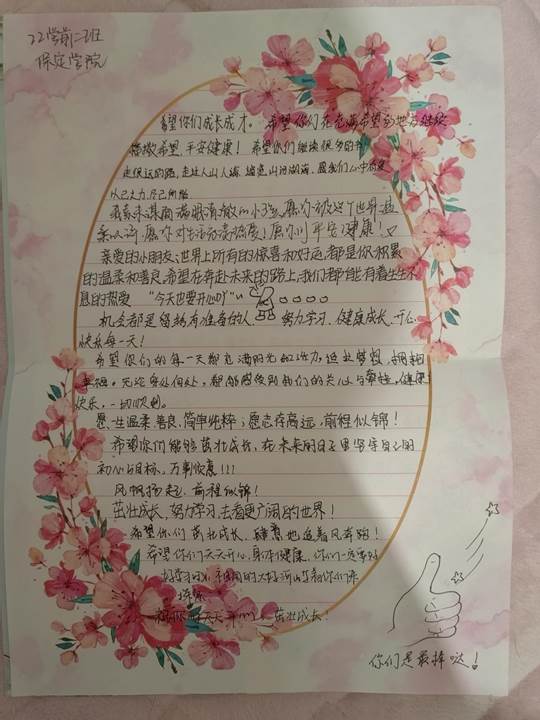 22学前二班
保定学院
希望你们成长成才。希望你们在充满希望的地方继续
播撒希望,平安健康!希望你们继续很多的书
走很远的路,走过人山人海,踏遍山河湖海,愿我们心中
以己之力,尽己所能
愿你被这个世界温
柔以待,愿你对生活充满热爱,愿你们平安健康!
亲爱的小朋友,世界上所有的惊喜和好运,都是你积累
的温柔和善良,希望在奔赴未来的路上,我们都能有着生生不
息的热爱 “今天也要开心吖”
机会都是留给有准备的人 努力学习,健康成长,开心
快乐每一天!
希望你们的每一天都充满阳光和活力,追逐梦想,拥抱
幸福。无论身处何处,都能感受到我们的关心与牵挂,健康
快乐,一切顺利。
愿一生温柔善良,简单纯粹;愿志存高远,前程似锦!
希望你们能够茁壮成长,在未来的日子里坚守自己的
初心与目标,万事顺意!!!
风帆扬起,前程似锦!
茁壮成长,努力学习,去看更广阔的世界!
希望你们茁壮成长,肆意地追着风奔跑!
希望你们天天开心,身体健康,你们一定要好
好学习,祖国的大好河山等着你们
祝你们天天开心,茁壮成长!
你们是最棒哒!